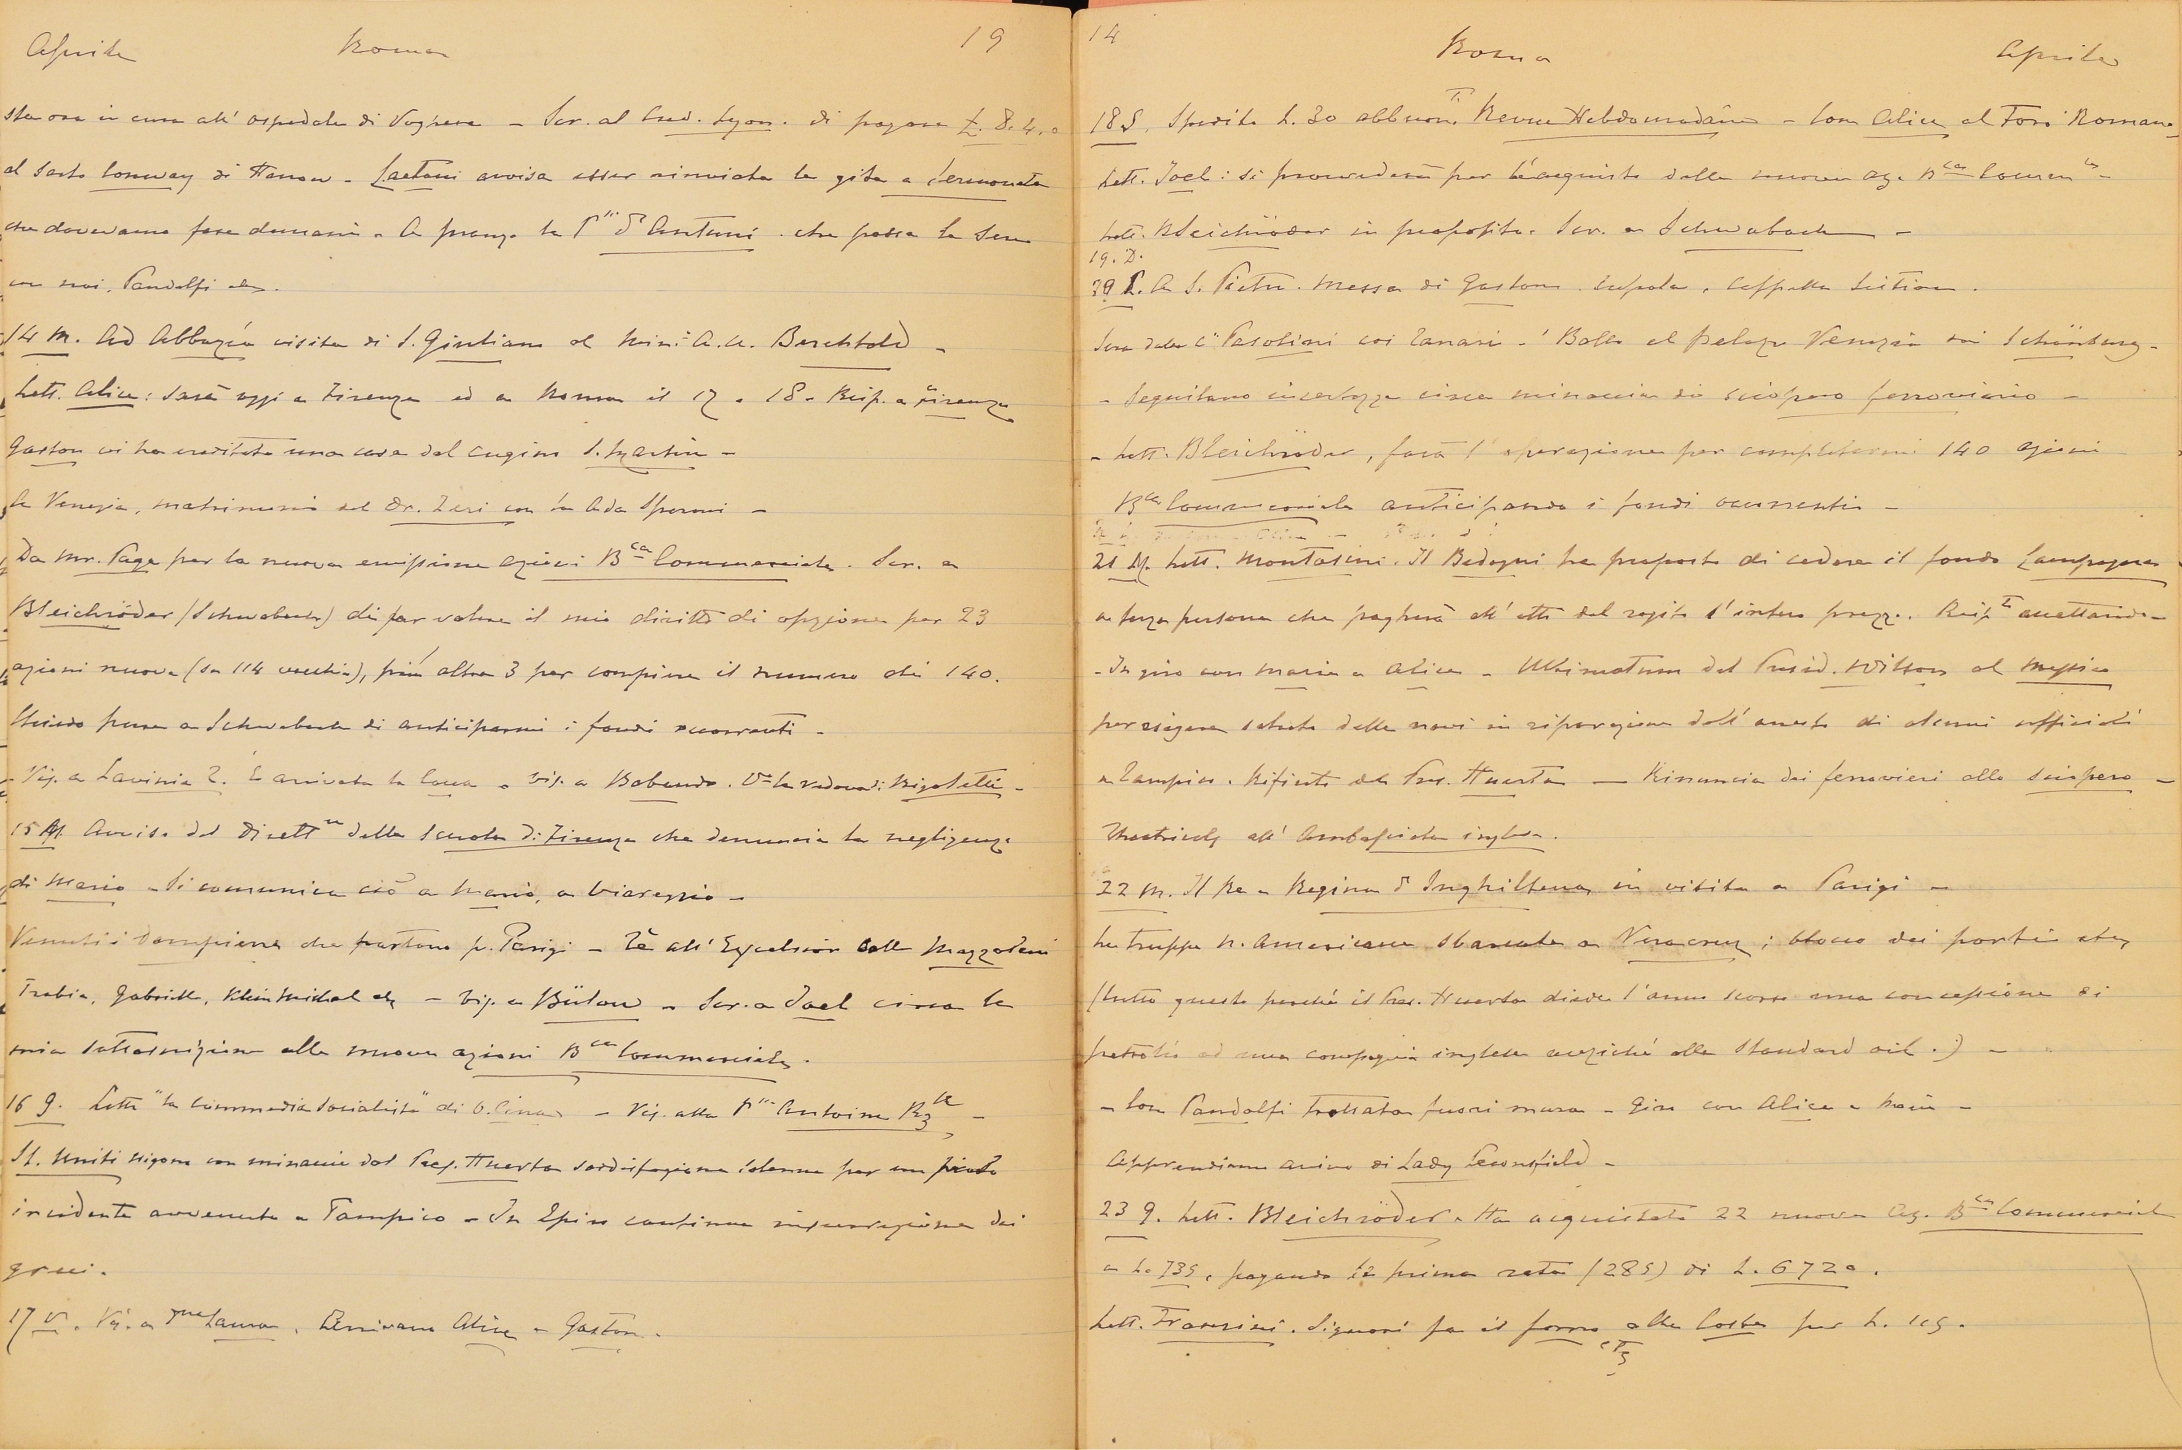 Aprile Roma 19
sta ora in cura all' ospedale di Voghera – Scr. al Cred. Lyon. di pagare £. 8.4.0
al sarto Conway di Harrow – Caetani avvisa esser rinviata la gita a Sermoneta
che dovevamo fare domani – A pranzo la P.ssa d'Antuni che passa la sera
con noi, Pandolfi etc.
14 M. Ad Abbazia visita di S. Giuliano al Min.o A.U. Berchtold –
Lett. Alice: sarà oggi a Firenze ed a Roma il 17 o 18 – Risp. a Firenze
Gaston ci ha ereditato una casa dal cugino S. Martin –
A Venezia, matrimonio del Dr. Zeri con la Ada
Da Mr. Page per la nuova emissione azioni Bca Commerciale. Scr. a
Bleichröder (Schwabach) di far valere il mio diritto di opzione per 23
azioni nuove (su 114 vecchie), più altre 3 per compiere il numero di 140.
Chiedo pure a Schwabach di anticiparmi i fondi occorrenti –
Vis. a Lavinia T. È arrivata la – Vis. a . V.a la vedova di Rigoletti –
15 M Avviso del Dirett.re della Scuola di Firenze che denuncia la negligenza
di Mario – Si comunica ciò a Mario, a Viareggio –
Venuti i Dampierre che partono p. Parigi – Tè all' Excelsior colle Mazzoleni
Trabia, Gabrielli, etc – Vis. a Bülow – Scr. a Joel circa la
mia sottoscrizione alle nuove azioni Bca Commerciale.
16 G. Letto "la Commedia Socialista" di – Vis. alla P.ssa Antoine
St. Uniti esigono con minaccie dal Pres. Huerta soddisfazione solenne per un piccolo
incidente avvenuto a Tampico – In Epiro continua insurrezione dei
greci.
17 V. Vis. a Laura. Arrivano Alice e Gaston.
14 Roma Aprile
18 S. Spedite L. 30 abbuon.ti Revue Hebdomadaire – Con Alice al Foro Romano
Lett. Joel: si provvederà per l'acquisto delle nuove az. Bca Comm.le –
Lett. Bleichröder in proposito. Scr. a Schwabach –
19. D.
20 L. A S. Pietro. Messa di Gaston. Cupola, Cappella Sistina.
Sera dalla C.ssa Pasolini coi Tanari – Ballo al palazzo Venezia dai Schönburg –
– Seguitano incertezze circa minaccia di sciopero ferroviario –
– Lett. Bleichröder, farà l'operazione per completarmi 140 azioni
Bca Commerciale anticipando i fondi occorrenti –
21 M. Lett. Montasini. Il Bedogni ha proposto di cedere il fondo Campagna
a terza persona che pagherà all' atto del rogito l'intero prezzo. Risp.to accettando –
– In giro con Maria e Alice – Ultimatum del Presid. Wilson al Messico
per esigere saluto delle navi in riparazione dell'arresto di alcuni ufficiali
a Tampico. Rifiuto del Pres. Huerta — Rinuncia dei ferrovieri allo sciopero –
Theatricals all' Ambasciata inglese.
22 M. Il Re e Regina d'Inghilterra in visita a Parigi –
Le truppe N. Americane sbarcate a Veracruz; blocco dei porti etc,
(tutto questo perché il Pres. Huerta diede l'anno scorso una concessione di
petrolio ad una compagnia inglese anziché alla Standard Oil.) –
– Con Pandolfi trottata fuori mura – Giro con Alice e Maria –
Apprendiamo arrivo di Lady
23 G. Lett. Bleichröder. Ha acquistato 22 nuove Az. Bca Commerciale
a L. 735, pagando la prima rata (285) di L. 6720.
Lett. Franzini. Signori fa il forno alla Costa per L. 115.